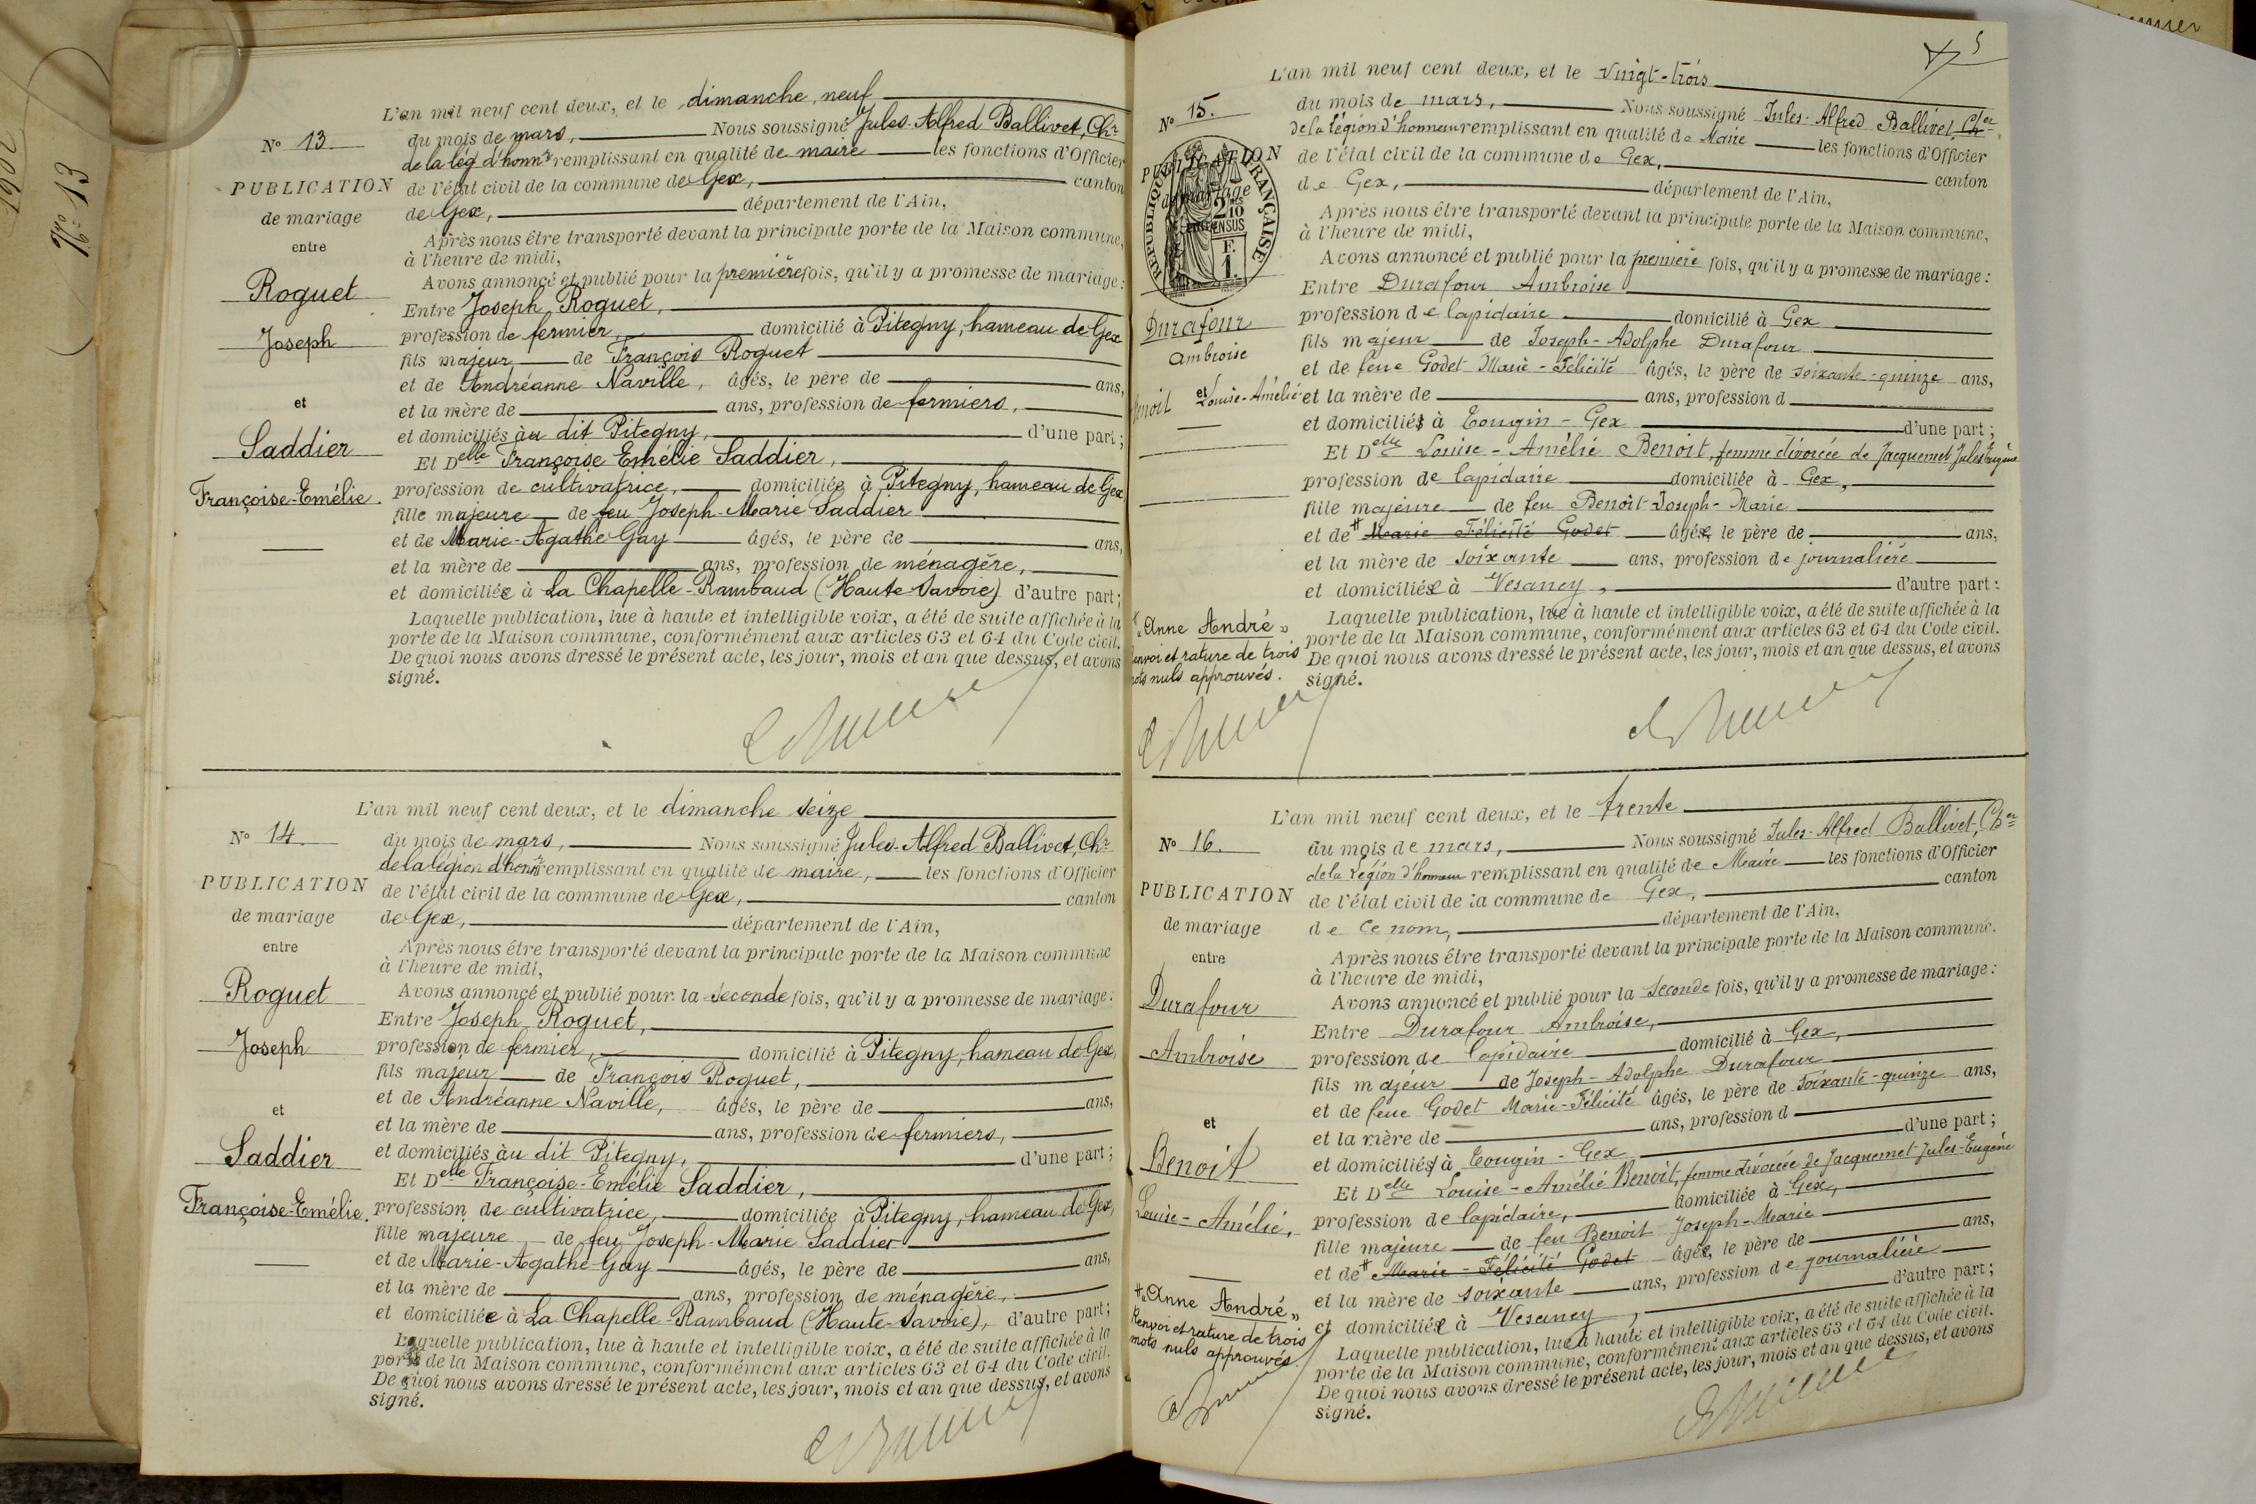 1902
No 13
L'an mil neuf cent deux, et le dimanche neuf
No 13
du mois de mars, Nous soussigné Jules-Alfred Ballivet, Chr
de la lég d'honnr remplissant en qualité de maire les fonctions d'Officier
PUBLICATION
de l'état civil de la commune de Gex, canton
de mariage
de Gex, département de l'Ain,
entre
Après nous être transporté devant la principale porte de la Maison commune,
à l'heure de midi,
Avons annoncé et publié pour la première fois, qu'il y a promesse de mariage:
Roguet
Entre Joseph Roguet,
Joseph
profession de fermier, domicilié à Pitegny, hameau de Gex
fils majeur de François Roguet
et de Andréanne Naville, âgés, le père de ans,
et
et la mère de ans, profession de fermiers,
et domiciliés au dit Pitegny, d'une part;
Saddier
Et Delle Françoise Emélie Saddier,
Françoise-Emélie.
profession de cultivatrice, domiciliée à Pitegny, hameau de Gex
fille majeure de feu Joseph-Marie Saddier
et de Marie-Agathe Gay âgés, le père de ans,
et la mère de ans, profession de ménagère,
et domiciliée à La Chapelle-Rambaud (Haute-Savoie) d'autre part;
Laquelle publication, lue à haute et intelligible voix, a été de suite affichée à la
porte de la Maison commune, conformément aux articles 63 et 64 du Code civil.
De quoi nous avons dressé le présent acte, les jour, mois et an que dessus, et avons
signé.
L'an mil neuf cent deux, et le dimanche seize
No 14.
du mois de mars, Nous soussigné Jules-Alfred Ballivet, Chr
de la légion d'honnr remplissant en qualité de maire, les fonctions d'Officier
PUBLICATION
de l'état civil de la commune de Gex, canton
de mariage
de Gex, département de l'Ain,
entre
Après nous être transporté devant la principale porte de la Maison commune
à l'heure de midi,
Avons annoncé et publié pour la seconde fois, qu'il y a promesse de mariage:
Roguet
Entre Joseph Roguet,
Joseph
profession de fermier, domicilié à Pitegny, hameau de Gex,
fils majeur de François Roguet,
et de Andréanne Naville, âgés, le père de ans,
et
et la mère de ans, profession de fermiers,
et domiciliés au dit Pitegny, d'une part;
Saddier
Et Delle Françoise-Emélie Saddier,
Françoise-Emélie.
profession de cultivatrice, domiciliée à Pitegny, hameau de Gex,
fille majeure de feu Joseph-Marie Saddier
et de Marie-Agathe Gay âgés, le père de ans,
et la mère de ans, profession de ménagère,
et domiciliée à La Chapelle-Rambaud (Haute-Savoie), d'autre part;
Laquelle publication, lue à haute et intelligible voix, a été de suite affichée à la
porte de la Maison commune, conformément aux articles 63 et 64 du Code civil.
De quoi nous avons dressé le présent acte, les jour, mois et an que dessus, et avons
signé.
5
L'an mil neuf cent deux, et le vingt-trois
No 15.
du mois de mars, Nous soussigné Jules-Alfred Ballivet, Cher
de la légion d'honneur remplissant en qualité de Maire les fonctions d'Officier
PUBLICATION
de l'état civil de la commune de Gex, canton
de mariage
de Gex, département de l'Ain,
RÉPUBLIQUE FRANÇAISE
2/10 EN SUS
F. 1.
Après nous être transporté devant la principale porte de la Maison commune,
à l'heure de midi,
Avons annoncé et publié pour la première fois, qu'il y a promesse de mariage:
Entre Durafour Ambroise
Durafour
profession de lapidaire domicilié à Gex
Ambroise
fils majeur de Joseph-Adolphe Durafour
et de feue Godet Marie-Félicité âgés, le père de soixante-quinze ans,
et
Benoit Louise-Amélie
et la mère de ans, profession d
et domiciliés à Tougin-Gex d'une part;
Et Delle Louise-Amélie Benoit, femme divorcée de Jacquemet Jules Eugène
profession de lapidaire domiciliée à Gex,
fille majeure de feu Benoit Joseph-Marie
et de # Marie Félicité Godet âgée, le père de ans,
et la mère de soixante ans, profession de journalière
et domiciliée à Vesancy, d'autre part:
# "Anne André"
Renvoi et rature de trois
mots nuls approuvés.
Laquelle publication, lue à haute et intelligible voix, a été de suite affichée à la
porte de la Maison commune, conformément aux articles 63 et 64 du Code civil.
De quoi nous avons dressé le présent acte, les jour, mois et an que dessus, et avons
signé.
L'an mil neuf cent deux, et le trente
No 16.
du mois de mars, Nous soussigné Jules-Alfred Ballivet, Cher
de la Légion d'honneur remplissant en qualité de Maire les fonctions d'Officier
PUBLICATION
de l'état civil de la commune de Gex, canton
de mariage
de Ce nom, département de l'Ain,
entre
Après nous être transporté devant la principale porte de la Maison commune.
à l'heure de midi,
Avons annoncé et publié pour la seconde fois, qu'il y a promesse de mariage:
Durafour
Entre Durafour Ambroise,
Ambroise
profession de lapidaire domicilié à Gex,
fils majeur de Joseph-Adolphe Durafour
et de feue Godet Marie-Félicité âgés, le père de soixante-quinze ans,
et
et la mère de ans, profession d
et domiciliés à Tougin-Gex d'une part;
Benoit
Et Delle Louise-Amélie Benoit, femme divorcée de Jacquemet Jules-Eugène
Louise-Amélie,
profession de lapidaire, domiciliée à Gex,
fille majeure de feu Benoit Joseph-Marie
et de # Marie-Félicité Godet âgée, le père de ans,
et la mère de soixante ans, profession de journalière
et domiciliée à Vesancy, d'autre part;
# "Anne André"
Renvoi et rature de trois
mots nuls approuvés.
Laquelle publication, lue à haute et intelligible voix, a été de suite affichée à la
porte de la Maison commune, conformément aux articles 63 et 64 du Code civil.
De quoi nous avons dressé le présent acte, les jour, mois et an que dessus, et avons
signé.